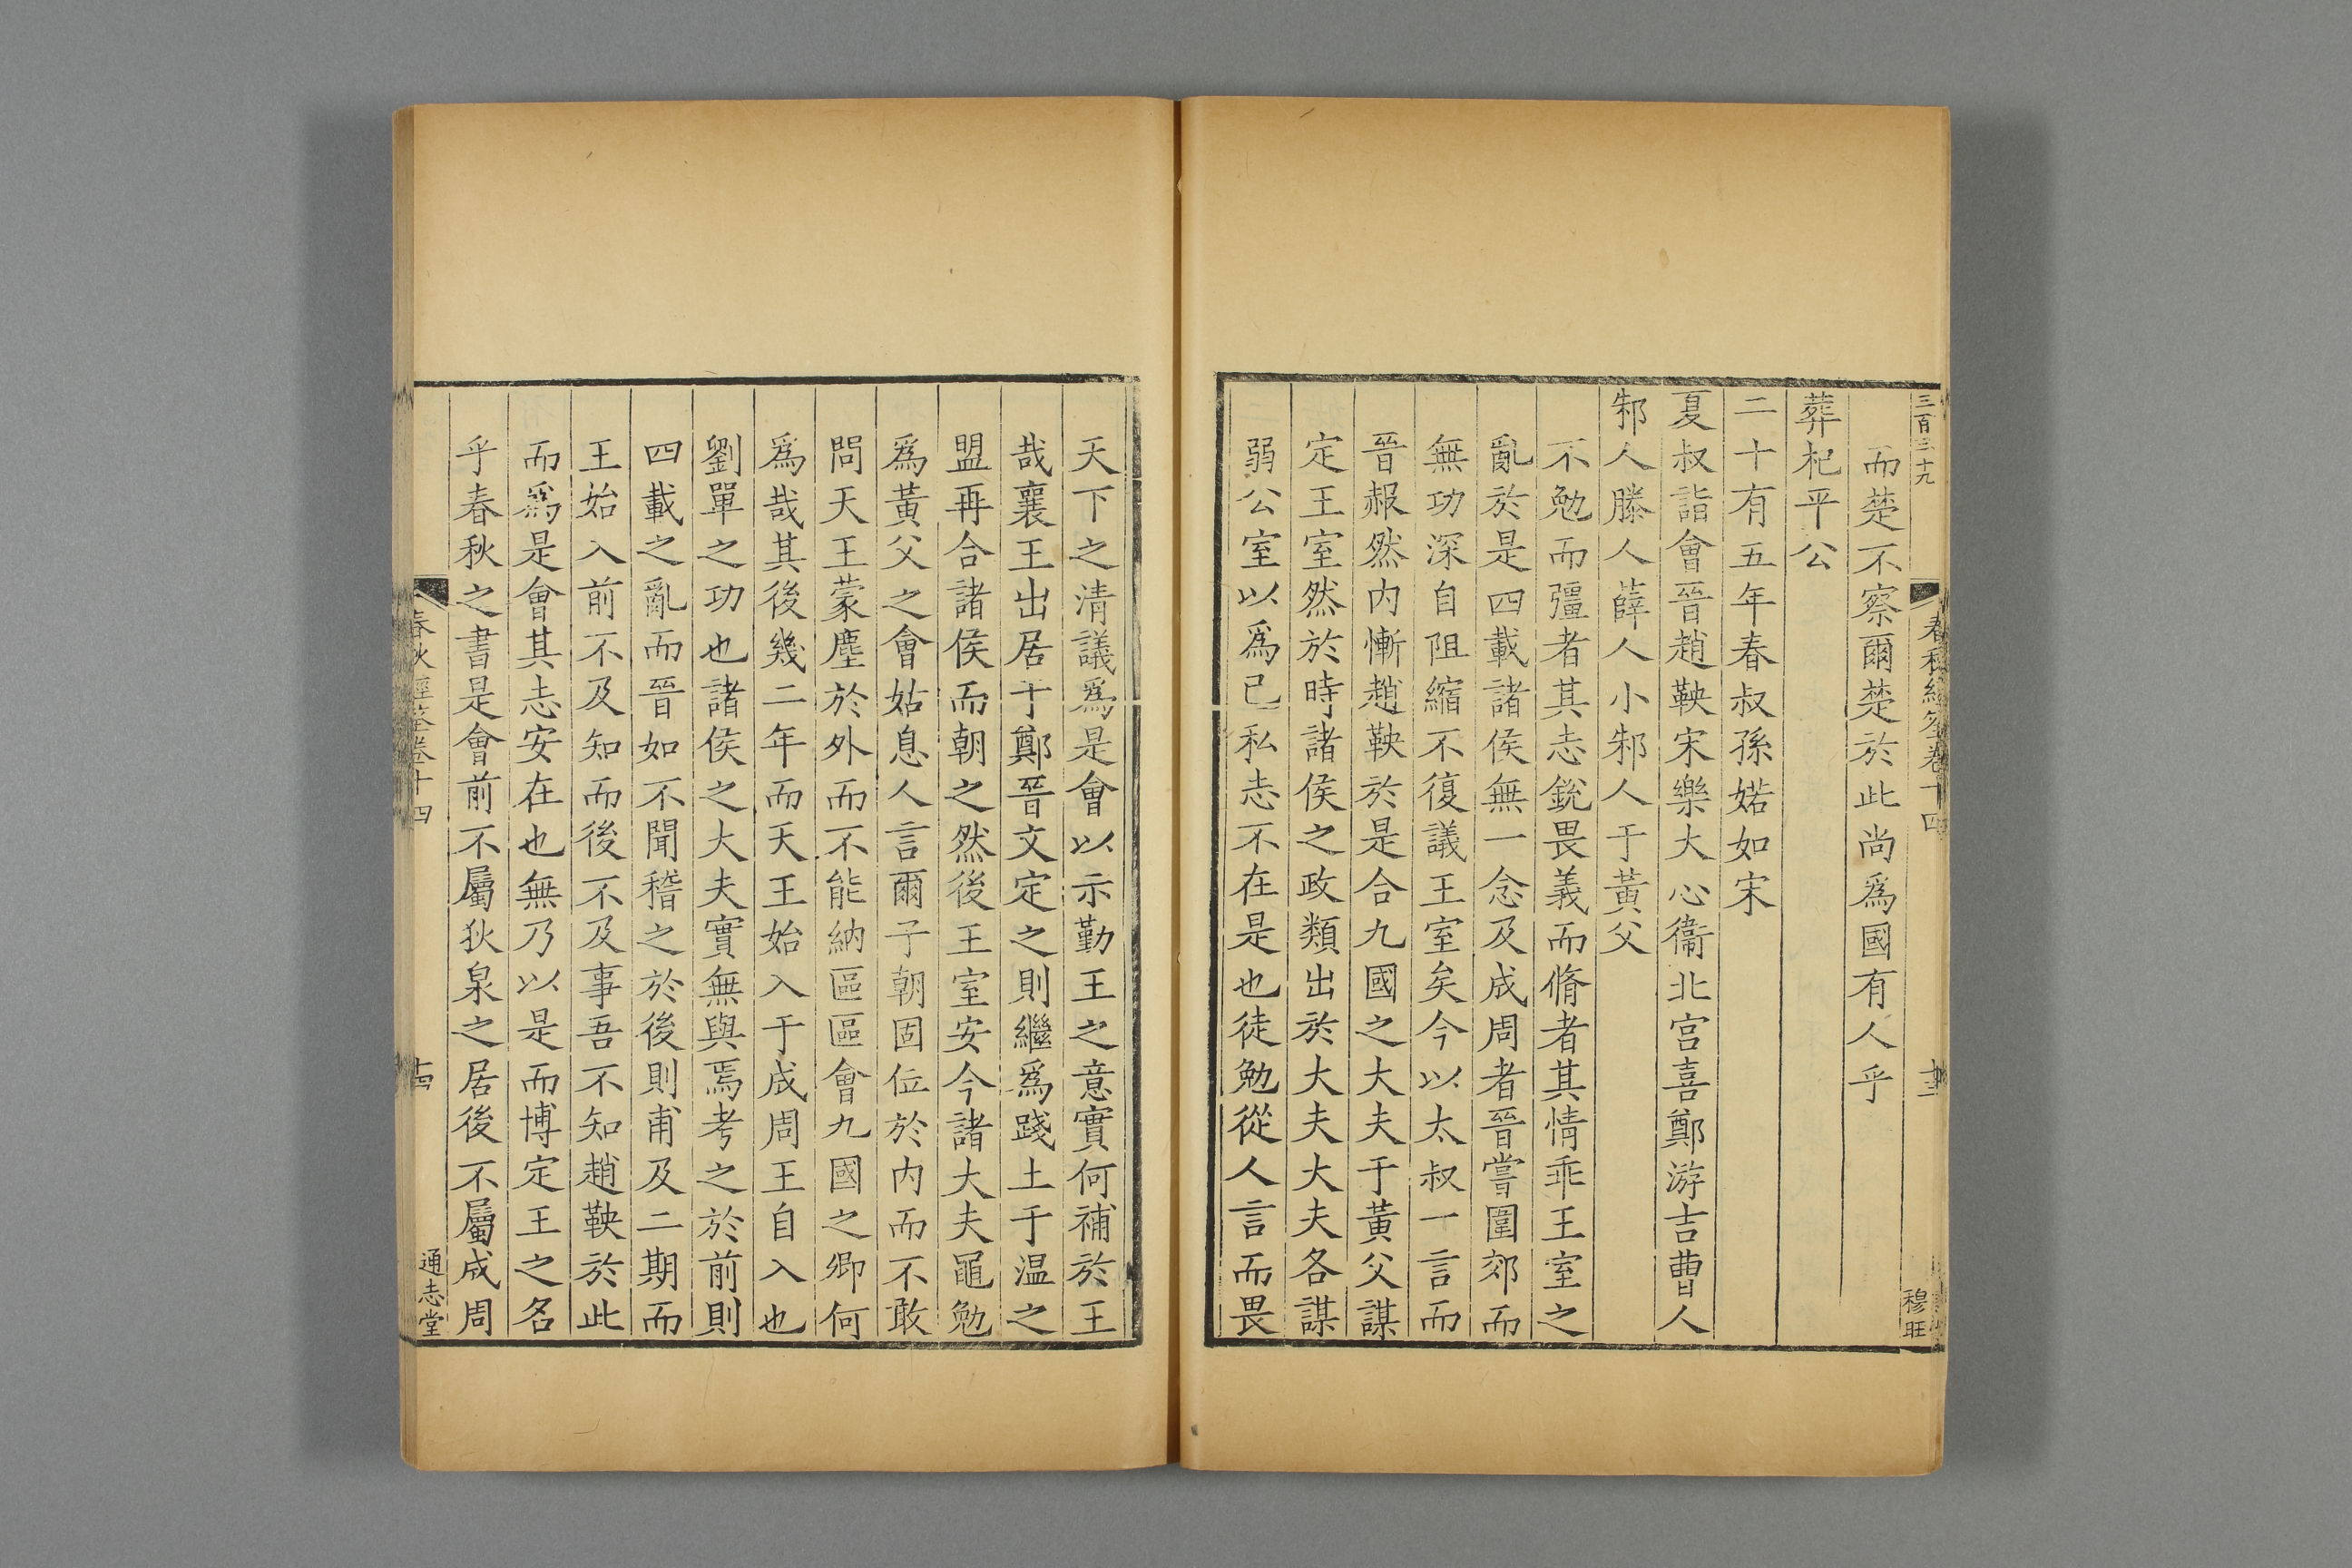 三百三十九
春秋經筌卷十四
十三
穆旺
而楚不察爾楚於此尚爲國有人乎
葬杞平公
二十有五年春叔孫婼如宋
夏叔詣會晉趙鞅宋樂大心衞北宮喜鄭游吉曹人
邾人滕人薛人小邾人于黃父
不勉而彊者其志銳畏義而脩者其情乖王室之
亂於是四載諸侯無一念及成周者晉嘗圍郊而
無功深自阻縮不復議王室矣今以太叔一言而
晉赧然内慚趙鞅於是合九國之大夫于黃父謀
定王室然於時諸侯之政類出於大夫大夫各謀
弱公室以爲己私志不在是也徒勉從人言而畏
天下之清議爲是會以示勤王之意實何補於王
哉襄王出居于鄭晉文定之則繼爲踐土于温之
盟再合諸侯而朝之然後王室安今諸大夫黽勉
爲黃父之會姑息人言爾子朝固位於内而不敢
問天王蒙塵於外而不能納區區會九國之卿何
爲哉其後幾二年而天王始入于成周王自入也
劉單之功也諸侯之大夫實無與焉考之於前則
四載之亂而晉如不聞稽之於後則甫及二期而
王始入前不及知而後不及事吾不知趙鞅於此
而爲是會其志安在也無乃以是而博定王之名
乎春秋之書是會前不屬狄泉之居後不屬成周
春秋經筌卷十四
十四
通志堂